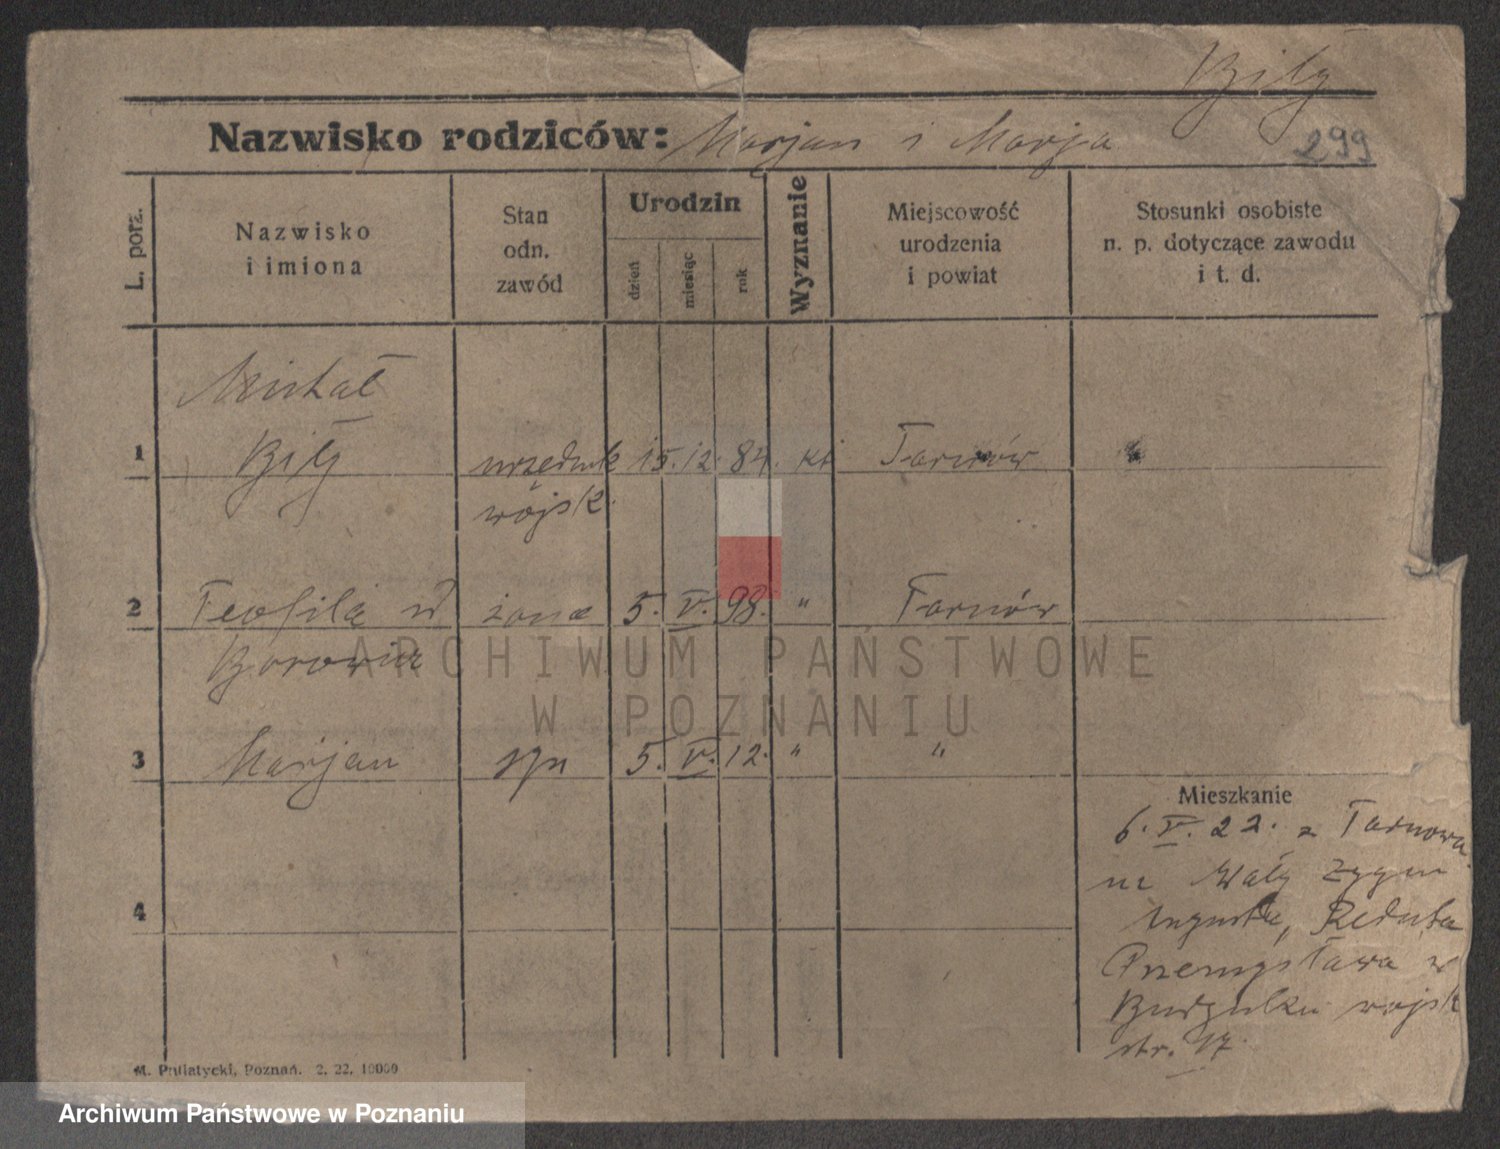 Biły
Nazwisko rodziców: Marjan i Marja
299
L. porz.
Nazwisko i imiona
Stan odn. zawód
Urodzin
dzień
miesiąc
rok
Wyznanie
Miejscowość urodzenia i powiat
Stosunki osobiste n. p. dotyczące zawodu i t. d.
Michał
1 Biły urzędnik 15. 12. 84. kt Tarnów
wojsk.
2 Teofila żona 5. V. 98. " Tarnów
Borowicz
3 Marjan syn 5. V. 12. " "
Mieszkanie
6. V. 22. z Tarnowa
na Wały Zygm
Augusta, Reduta
Przemysława w
Budynku wojsk
str. 17.
4
ARCHIWUM PAŃSTWOWE
W POZNANIU
M. Putiatycki, Poznań. 2. 22. 10000
Archiwum Państwowe w Poznaniu